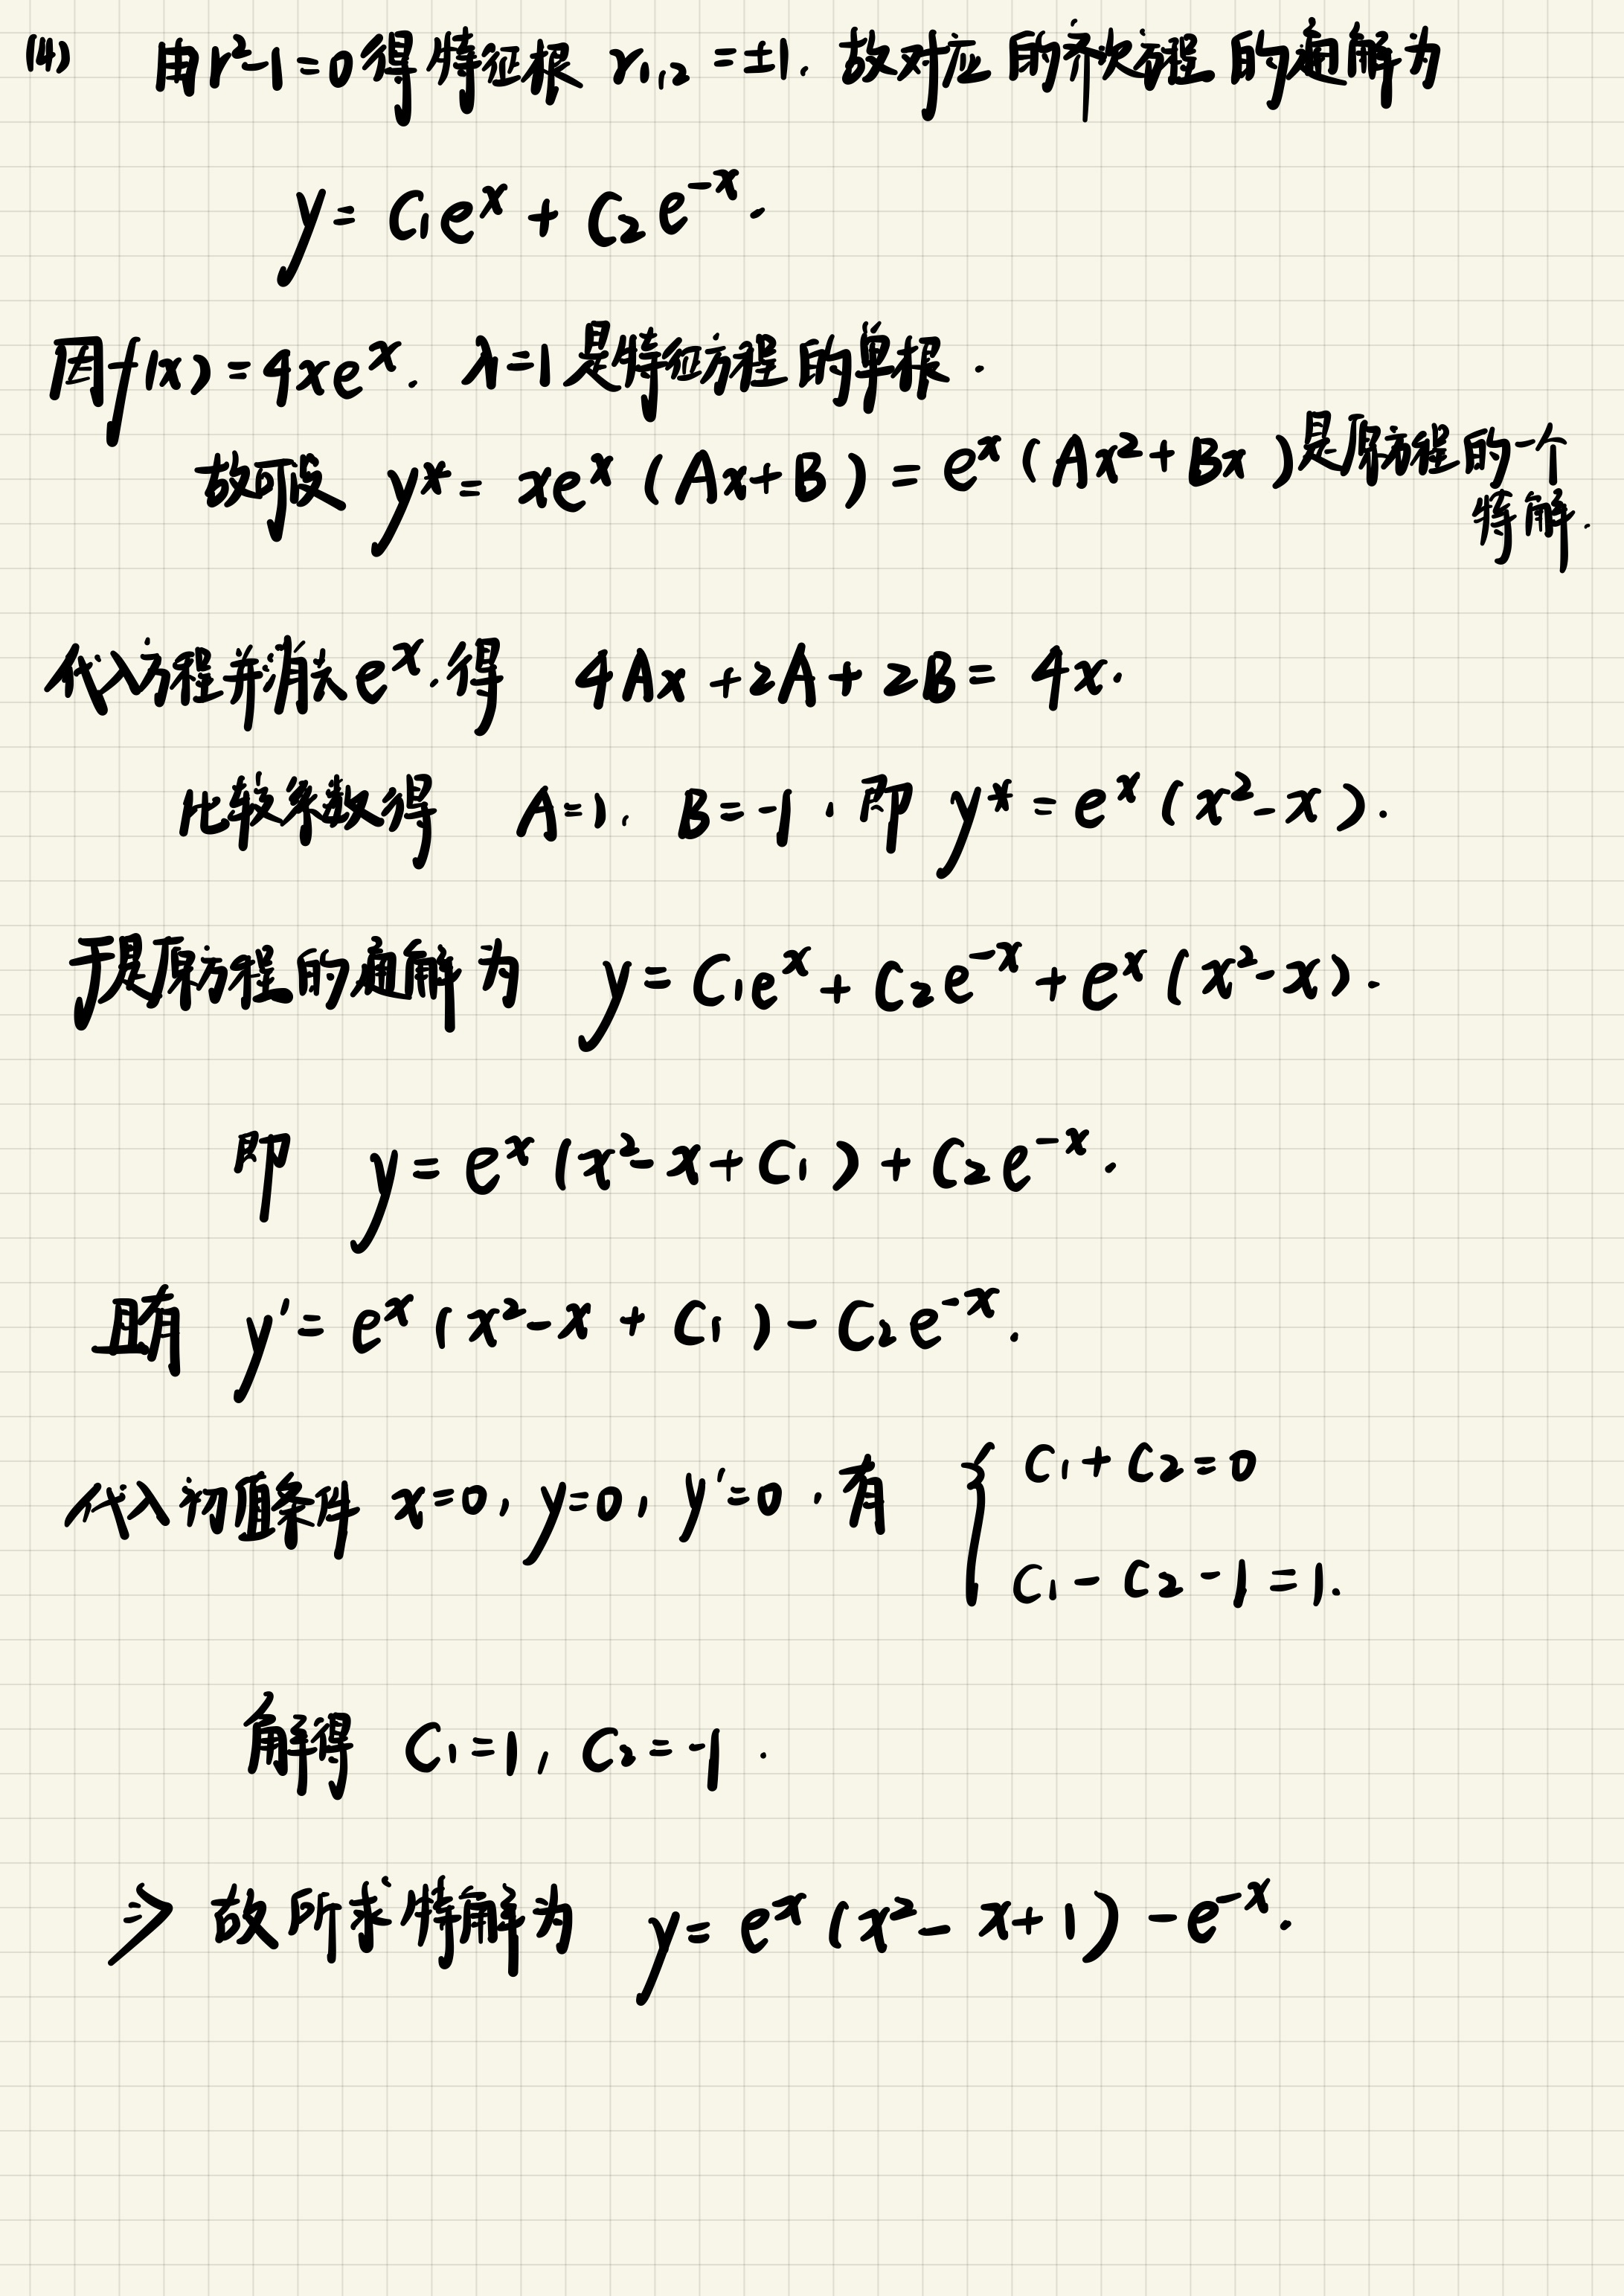 (4) 由r²-1=0得特征根 r₁,₂=±1. 故对应的齐次方程的通解为
y= C₁eˣ + C₂e⁻ˣ.
因f(x)=4xeˣ. λ=1是特征方程的单根.
故可设 y*= xeˣ(Ax+B)= eˣ(Ax²+Bx)是原方程的一个
特解.
代入方程并消去eˣ.得 4Ax+2A+2B= 4x.
比较系数得 A=1, B=-1.即 y*=eˣ(x²-x).
于是原方程的通解为 y=C₁eˣ+C₂e⁻ˣ+eˣ(x²-x).
即 y=eˣ(x²-x+C₁)+C₂e⁻ˣ.
且有 y'=eˣ(x²-x+C₁)-C₂e⁻ˣ.
代入初值条件 x=0, y=0, y'=0.有 { C₁+C₂=0
C₁-C₂-1=1.
解得 C₁=1, C₂=-1.
⇒ 故所求特解为 y=eˣ(x²-x+1)-e⁻ˣ.